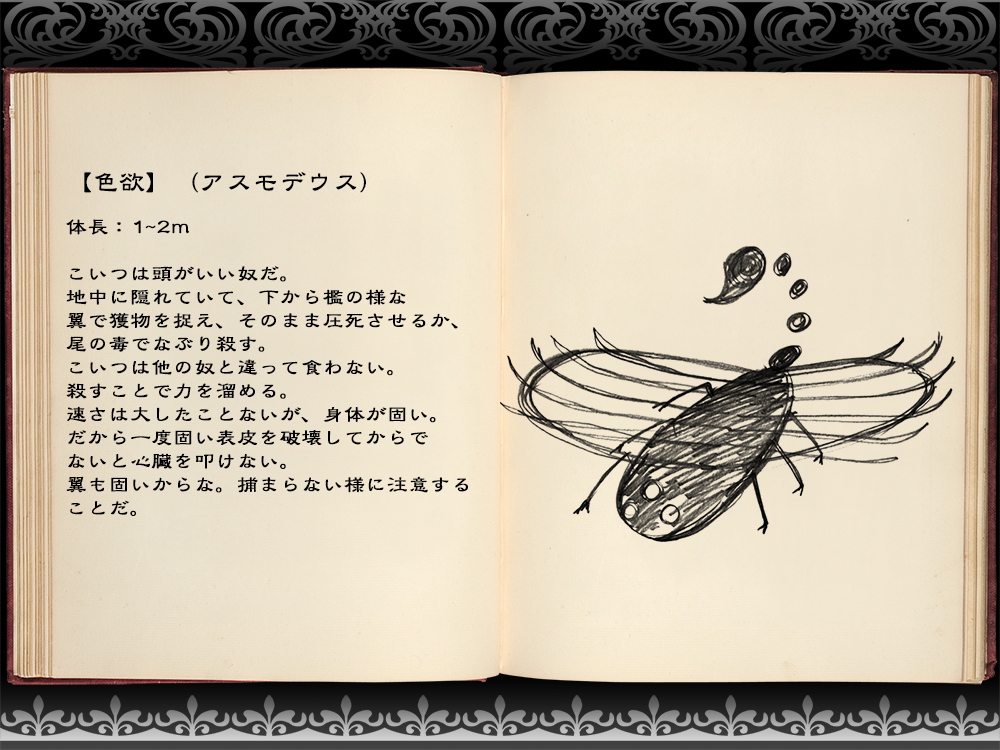 【色欲】 （アスモデウス）
体長：1~2m
こいつは頭がいい奴だ。
地中に隠れていて、下から檻の様な
翼で獲物を捉え、そのまま圧死させるか、
尾の毒でなぶり殺す。
こいつは他の奴と違って食わない。
殺すことで力を溜める。
速さは大したことないが、身体が固い。
だから一度固い表皮を破壊してからで
ないと心臓を叩けない。
翼も固いからな。捕まらない様に注意する
ことだ。